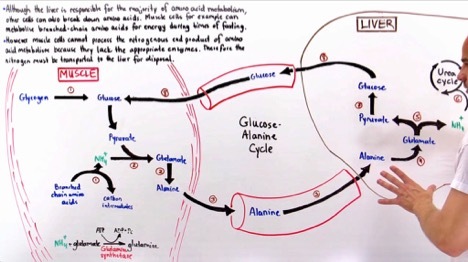 • Although the liver is responsible for the majority of amino acid metabolism,
other cells can also break down amino acids. Muscle cells for example can
metabolize branched-chain amino acids for energy during times of fasting.
• However muscle cells cannot process the nitrogenous end product of amino
acid metabolism because they lack the appropriate enzymes. Therefore the
nitrogen must be transported to the liver for disposal.
MUSCLE
LIVER
Glycogen
①
Glucose
⑨
Glucose
⑧
Glucose
Urea
cycle
⑥
Pyruvate
Glucose-
Alanine
Cycle
Pyruvate
⑤
NH₄
Glutamate
④
NH₄⁺
②
Glutamate
②
Alanine
①
Branched
chain amino
acids
carbon
intermediates
③
Alanine
③
Alanine
NH₄⁺ + glutamate
ATP
ADP + Pi
glutamine
Glutamine
synthetase